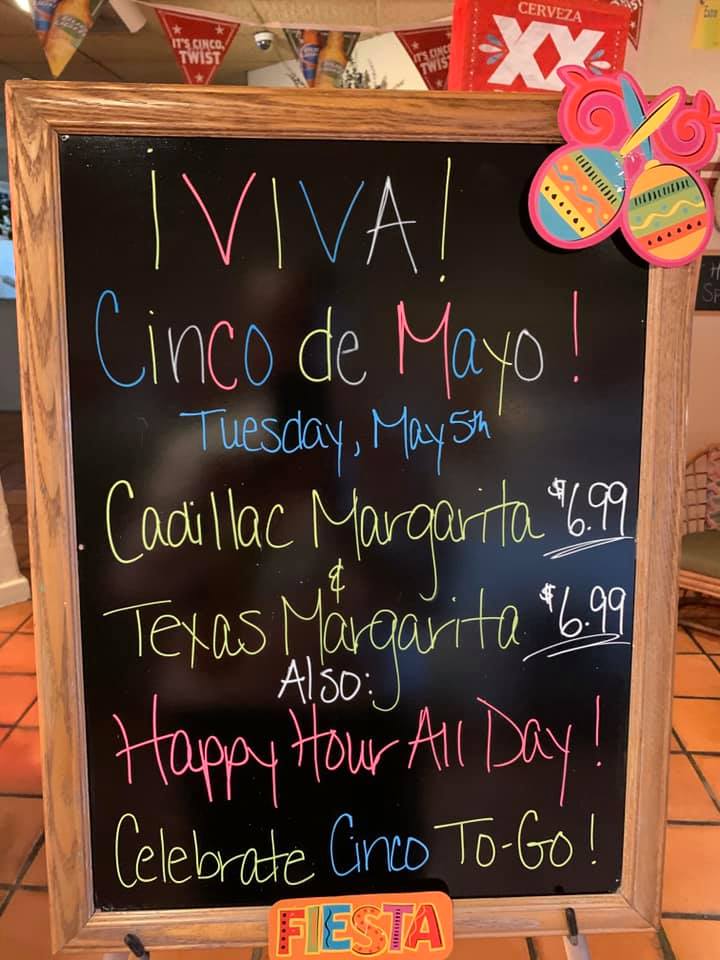 IT'S CINCO,
TWIST
IT'S CINCO,
TWIST
CERVEZA
XX
¡VIVA!
Cinco de Mayo!
Tuesday, May 5th
Cadillac Margarita $6.99
&
Texas Margarita $6.99
Also:
Happy Hour All Day!
Celebrate Cinco To-Go!
FIESTA